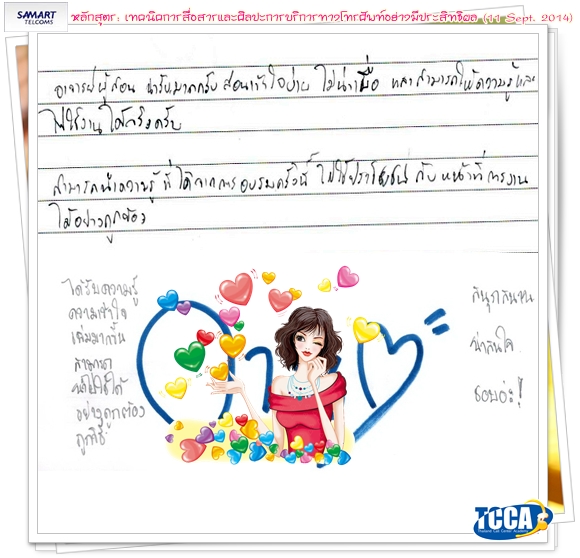 SAMART
TELCOMS
หลักสูตร: เทคนิคการสื่อสารและศิลปะการบริการทางโทรศัพท์อย่างมีประสิทธิผล (11 Sept. 2014)
อาจารย์ผู้สอน น่ารักมากครับ สอนเข้าใจง่าย ไม่น่าเบื่อ และสามารถให้ความรู้และ
ไปใช้งานได้จริงครับ
สามารถนำความรู้ ที่ได้จากการอบรมครั้งนี้ ไปใช้ประโยชน์ กับหน้าที่การงาน
ได้อย่างถูกต้อง
ได้รับความรู้
ความเข้าใจ
เพิ่มมากขึ้น
สามารถ
นำไปใช้ได้
อย่างถูกต้อง
ถูกวิธี
สนุกสนาน
น่าสนใจ
ชอบค่ะ!
TCCA
Thailand Call Center Academy